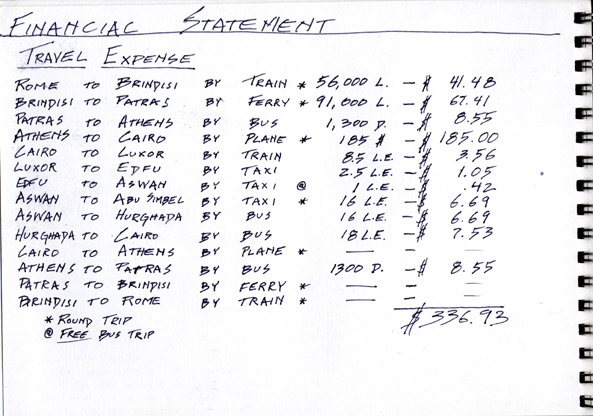 FINANCIAL STATEMENT
TRAVEL EXPENSE
ROME TO BRINDISI BY TRAIN * 56,000 L. - $ 41.48
BRINDISI TO PATRAS BY FERRY * 91,000 L. - $ 67.41
PATRAS TO ATHENS BY BUS 1,300 D. - $ 8.55
ATHENS TO CAIRO BY PLANE * 185 $ - $ 185.00
CAIRO TO LUXOR BY TRAIN 8.5 L.E. - $ 3.56
LUXOR TO EDFU BY TAXI 2.5 L.E. - $ 1.05
EDFU TO ASWAN BY TAXI @ 1 L.E. - $ .42
ASWAN TO ABU SIMBEL BY TAXI * 16 L.E. - $ 6.69
ASWAN TO HURGHADA BY BUS 16 L.E. - $ 6.69
HURGHADA TO CAIRO BY BUS 18 L.E. - $ 7.53
CAIRO TO ATHENS BY PLANE * — - —
ATHENS TO PATRAS BY BUS 1300 D. - $ 8.55
PATRAS TO BRINDISI BY FERRY * — - —
BRINDISI TO ROME BY TRAIN * — - —
* ROUND TRIP $336.93
@ FREE BUS TRIP